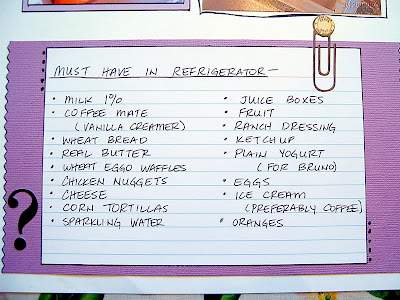 MUST HAVE IN REFRIGERATOR—
• MILK 1%
• COFFEE MATE
(VANILLA CREAMER)
• WHEAT BREAD
• REAL BUTTER
• WHEAT EGGO WAFFLES
• CHICKEN NUGGETS
• CHEESE
• CORN TORTILLAS
• SPARKLING WATER
• JUICE BOXES
• FRUIT
• RANCH DRESSING
• KETCHUP
• PLAIN YOGURT
(FOR BRUNO)
• EGGS
• ICE CREAM
(PREFERABLY COFFEE)
• ORANGES
?